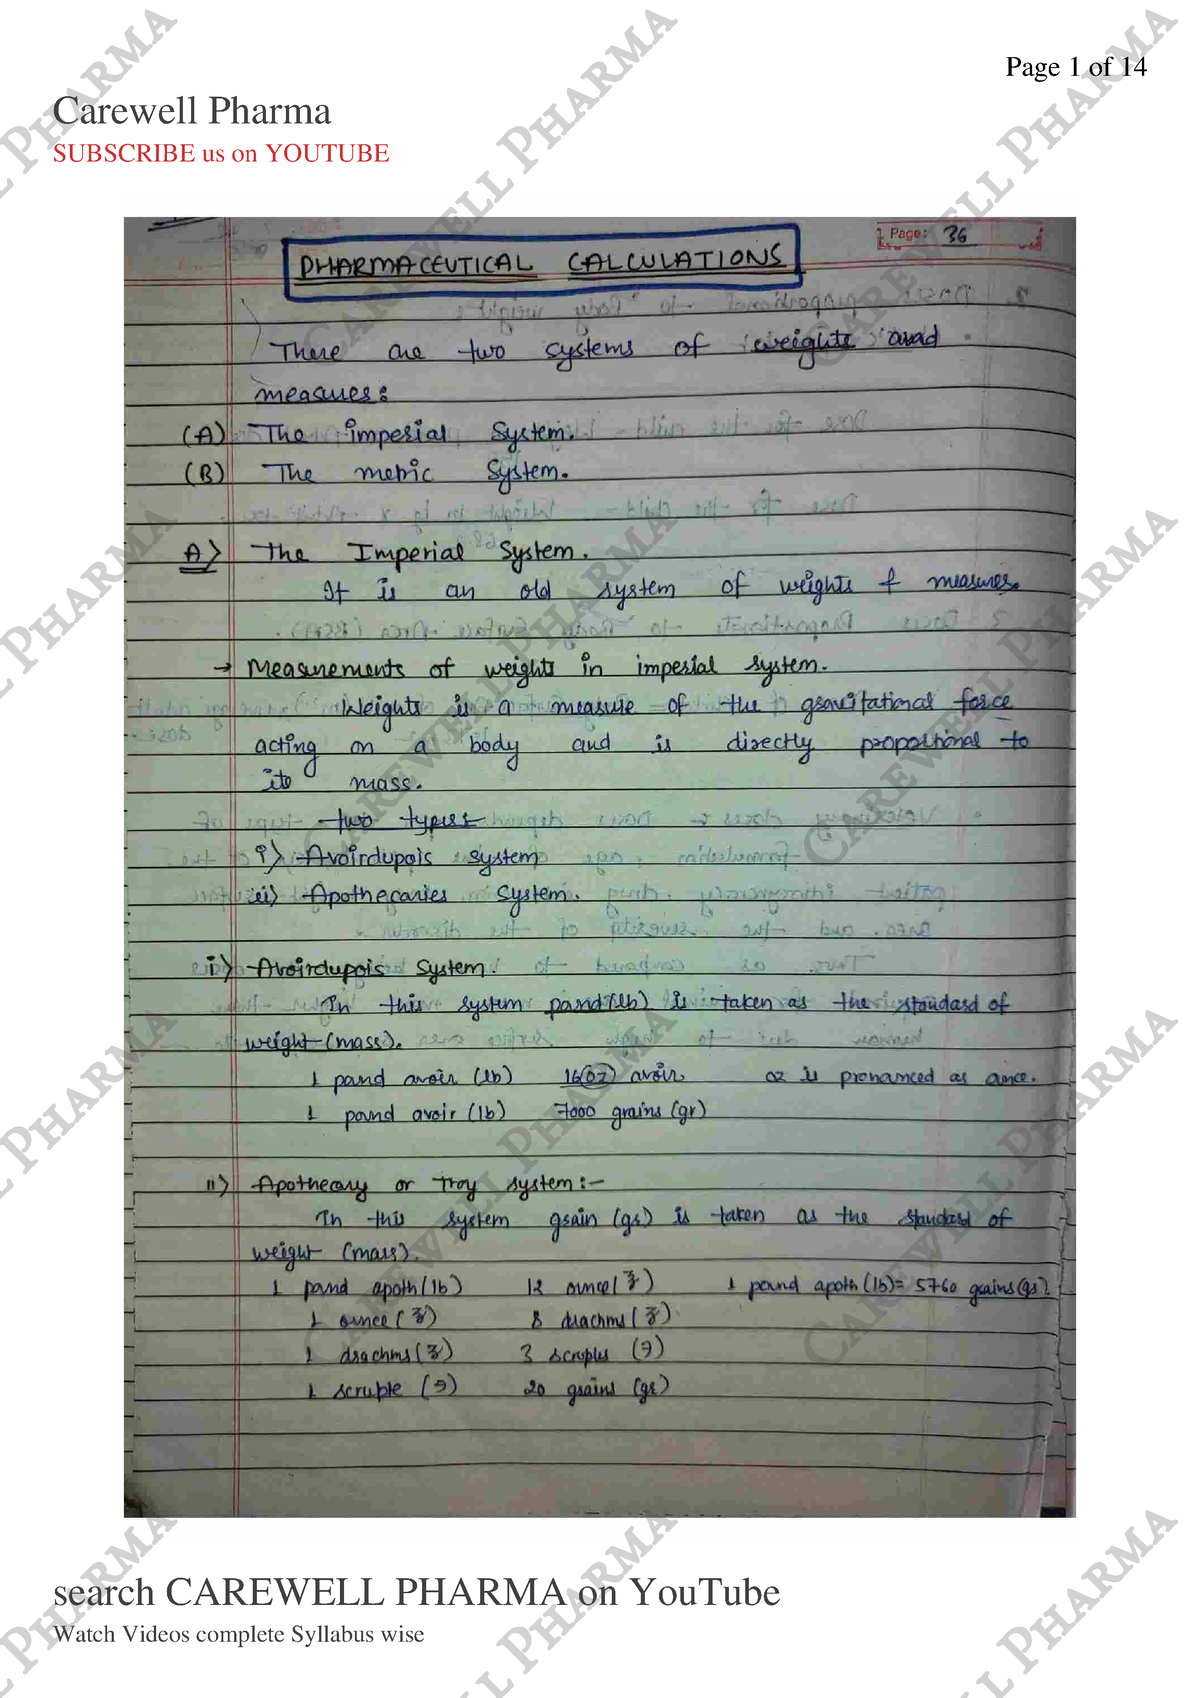 Page 1 of 14
Carewell Pharma
SUBSCRIBE us on YOUTUBE
Page: 36
PHARMACEUTICAL CALCULATIONS
There are two systems of weights and
measures:
(A) The imperial System.
(B) The metric System.
A) The Imperial System.
It is an old system of weights & measures.
→ Measurements of weights in imperial system.
Weights is a measure of the gravitational force
acting on a body and is directly proportional to
its mass.
two types
i) Avoirdupois system
ii) Apothecaries System.
i) Avoirdupois System.
In this system pound (lb) is taken as the standard of
weight (mass).
1 pound avoir (lb) 16(oz) avoir. oz is pronanced as ounce.
1 pound avoir (lb) 7000 grains (gr)
ii) Apothecary or Troy system:-
In this system grain (gr) is taken as the standard of
weight (mass).
1 pound apoth (lb) 12 ounce (ʒ) 1 pound apoth (lb) = 5760 grains (gr).
1 ounce (ʒ) 8 drachms (ʒ)
1 drachms (ʒ) 3 scruples (℈)
1 scruple (℈) 20 grains (gr)
search CAREWELL PHARMA on YouTube
Watch Videos complete Syllabus wise
CAREWELL PHARMA